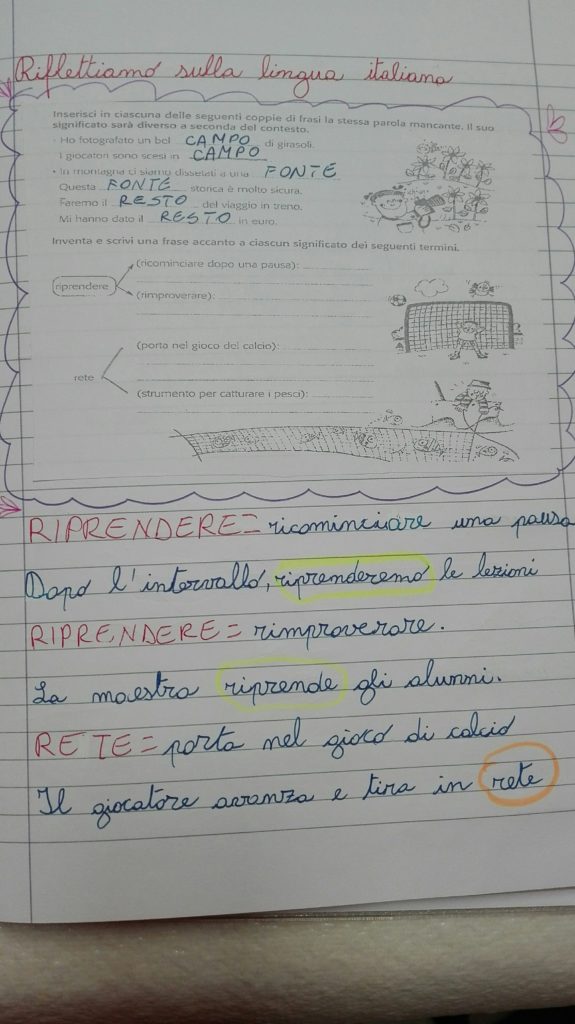 Riflettiamo sulla lingua italiana
Inserisci in ciascuna delle seguenti coppie di frasi la stessa parola mancante. Il suo
significato sarà diverso a seconda del contesto.
• Ho fotografato un bel CAMPO di girasoli.
I giocatori sono scesi in CAMPO
• In montagna ci siamo dissetati a una FONTE
Questa FONTE storica è molto sicura.
Faremo il RESTO del viaggio in treno.
Mi hanno dato il RESTO in euro.
Inventa e scrivi una frase accanto a ciascun significato dei seguenti termini.
(ricominciare dopo una pausa):
riprendere
(rimproverare):
(porta nel gioco del calcio):
rete
(strumento per catturare i pesci):
RIPRENDERE= ricominciare una pausa
Dopo l'intervallo, riprenderemo le lezioni
RIPRENDERE= rimproverare.
La maestra riprende gli alunni.
RETE= porta nel gioco di calcio
Il giocatore avanza e tira in rete